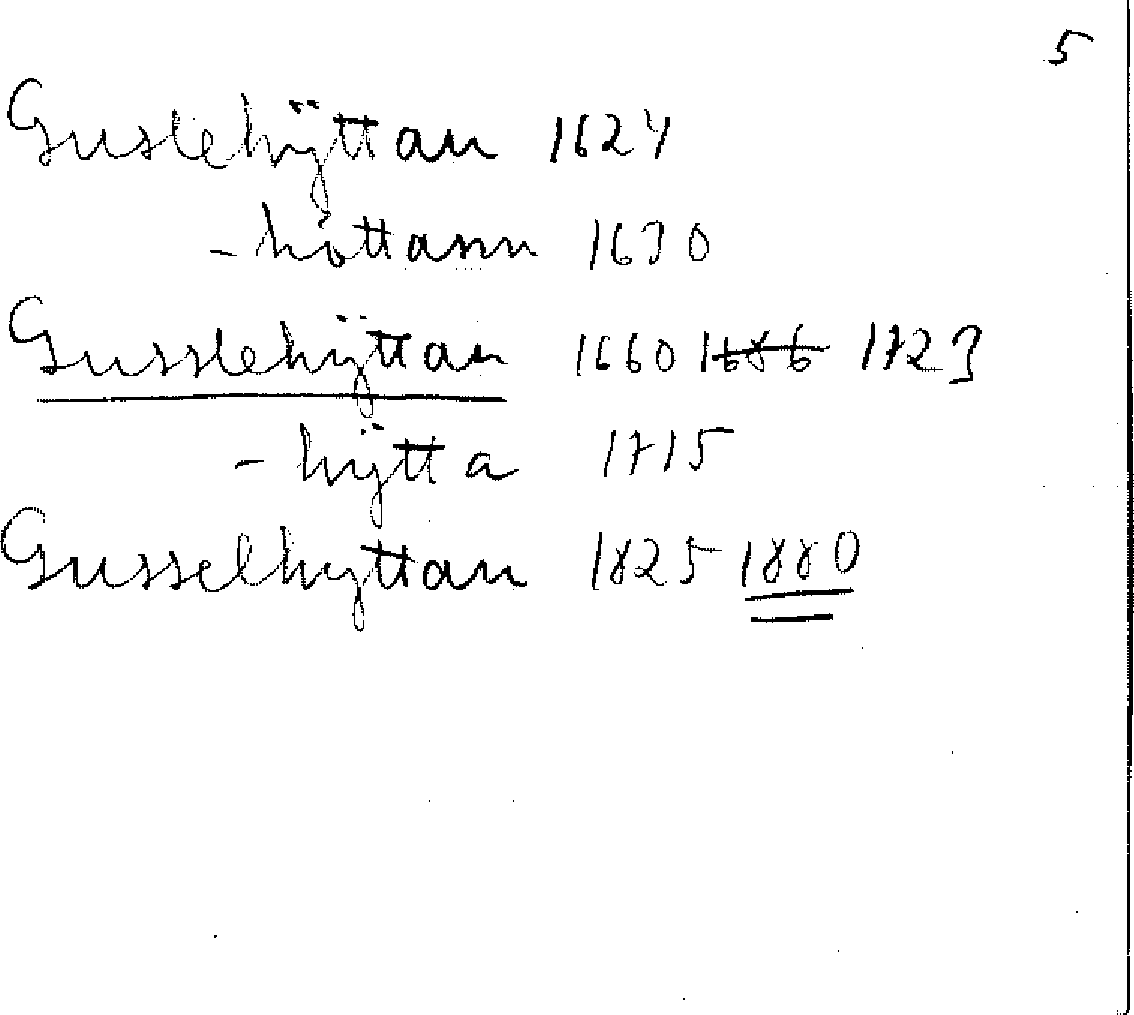 5
Guslehÿttan 1624
-hòttann 1630
Gusslehÿttan 1660 1686 1723
-hÿtta 1715
Gusselhyttan 1825 1880